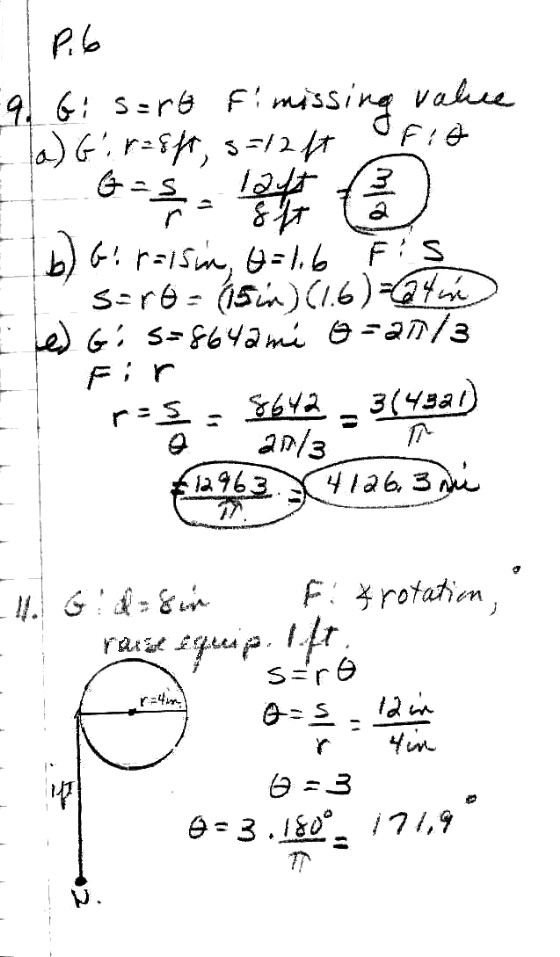 P. 6
9. G: s=rθ F: missing value
a) G: r=8ft, s=12ft F: θ
θ = s/r = 12ft/8ft = 3/2
b) G: r=15in, θ=1.6 F: s
s=rθ = (15in)(1.6) = 24in
e) G: s=8642mi θ=2π/3
F: r
r = s/θ = 8642/(2π/3) = 3(4321)/π
= 12963/π = 4126.3 mi
11. G: d=8in F: ∡ rotation, °
raise equip. 1ft.
s=rθ
r=4in
θ = s/r = 12in/4in
θ = 3
1ft
θ = 3 · 180°/π = 171.9°